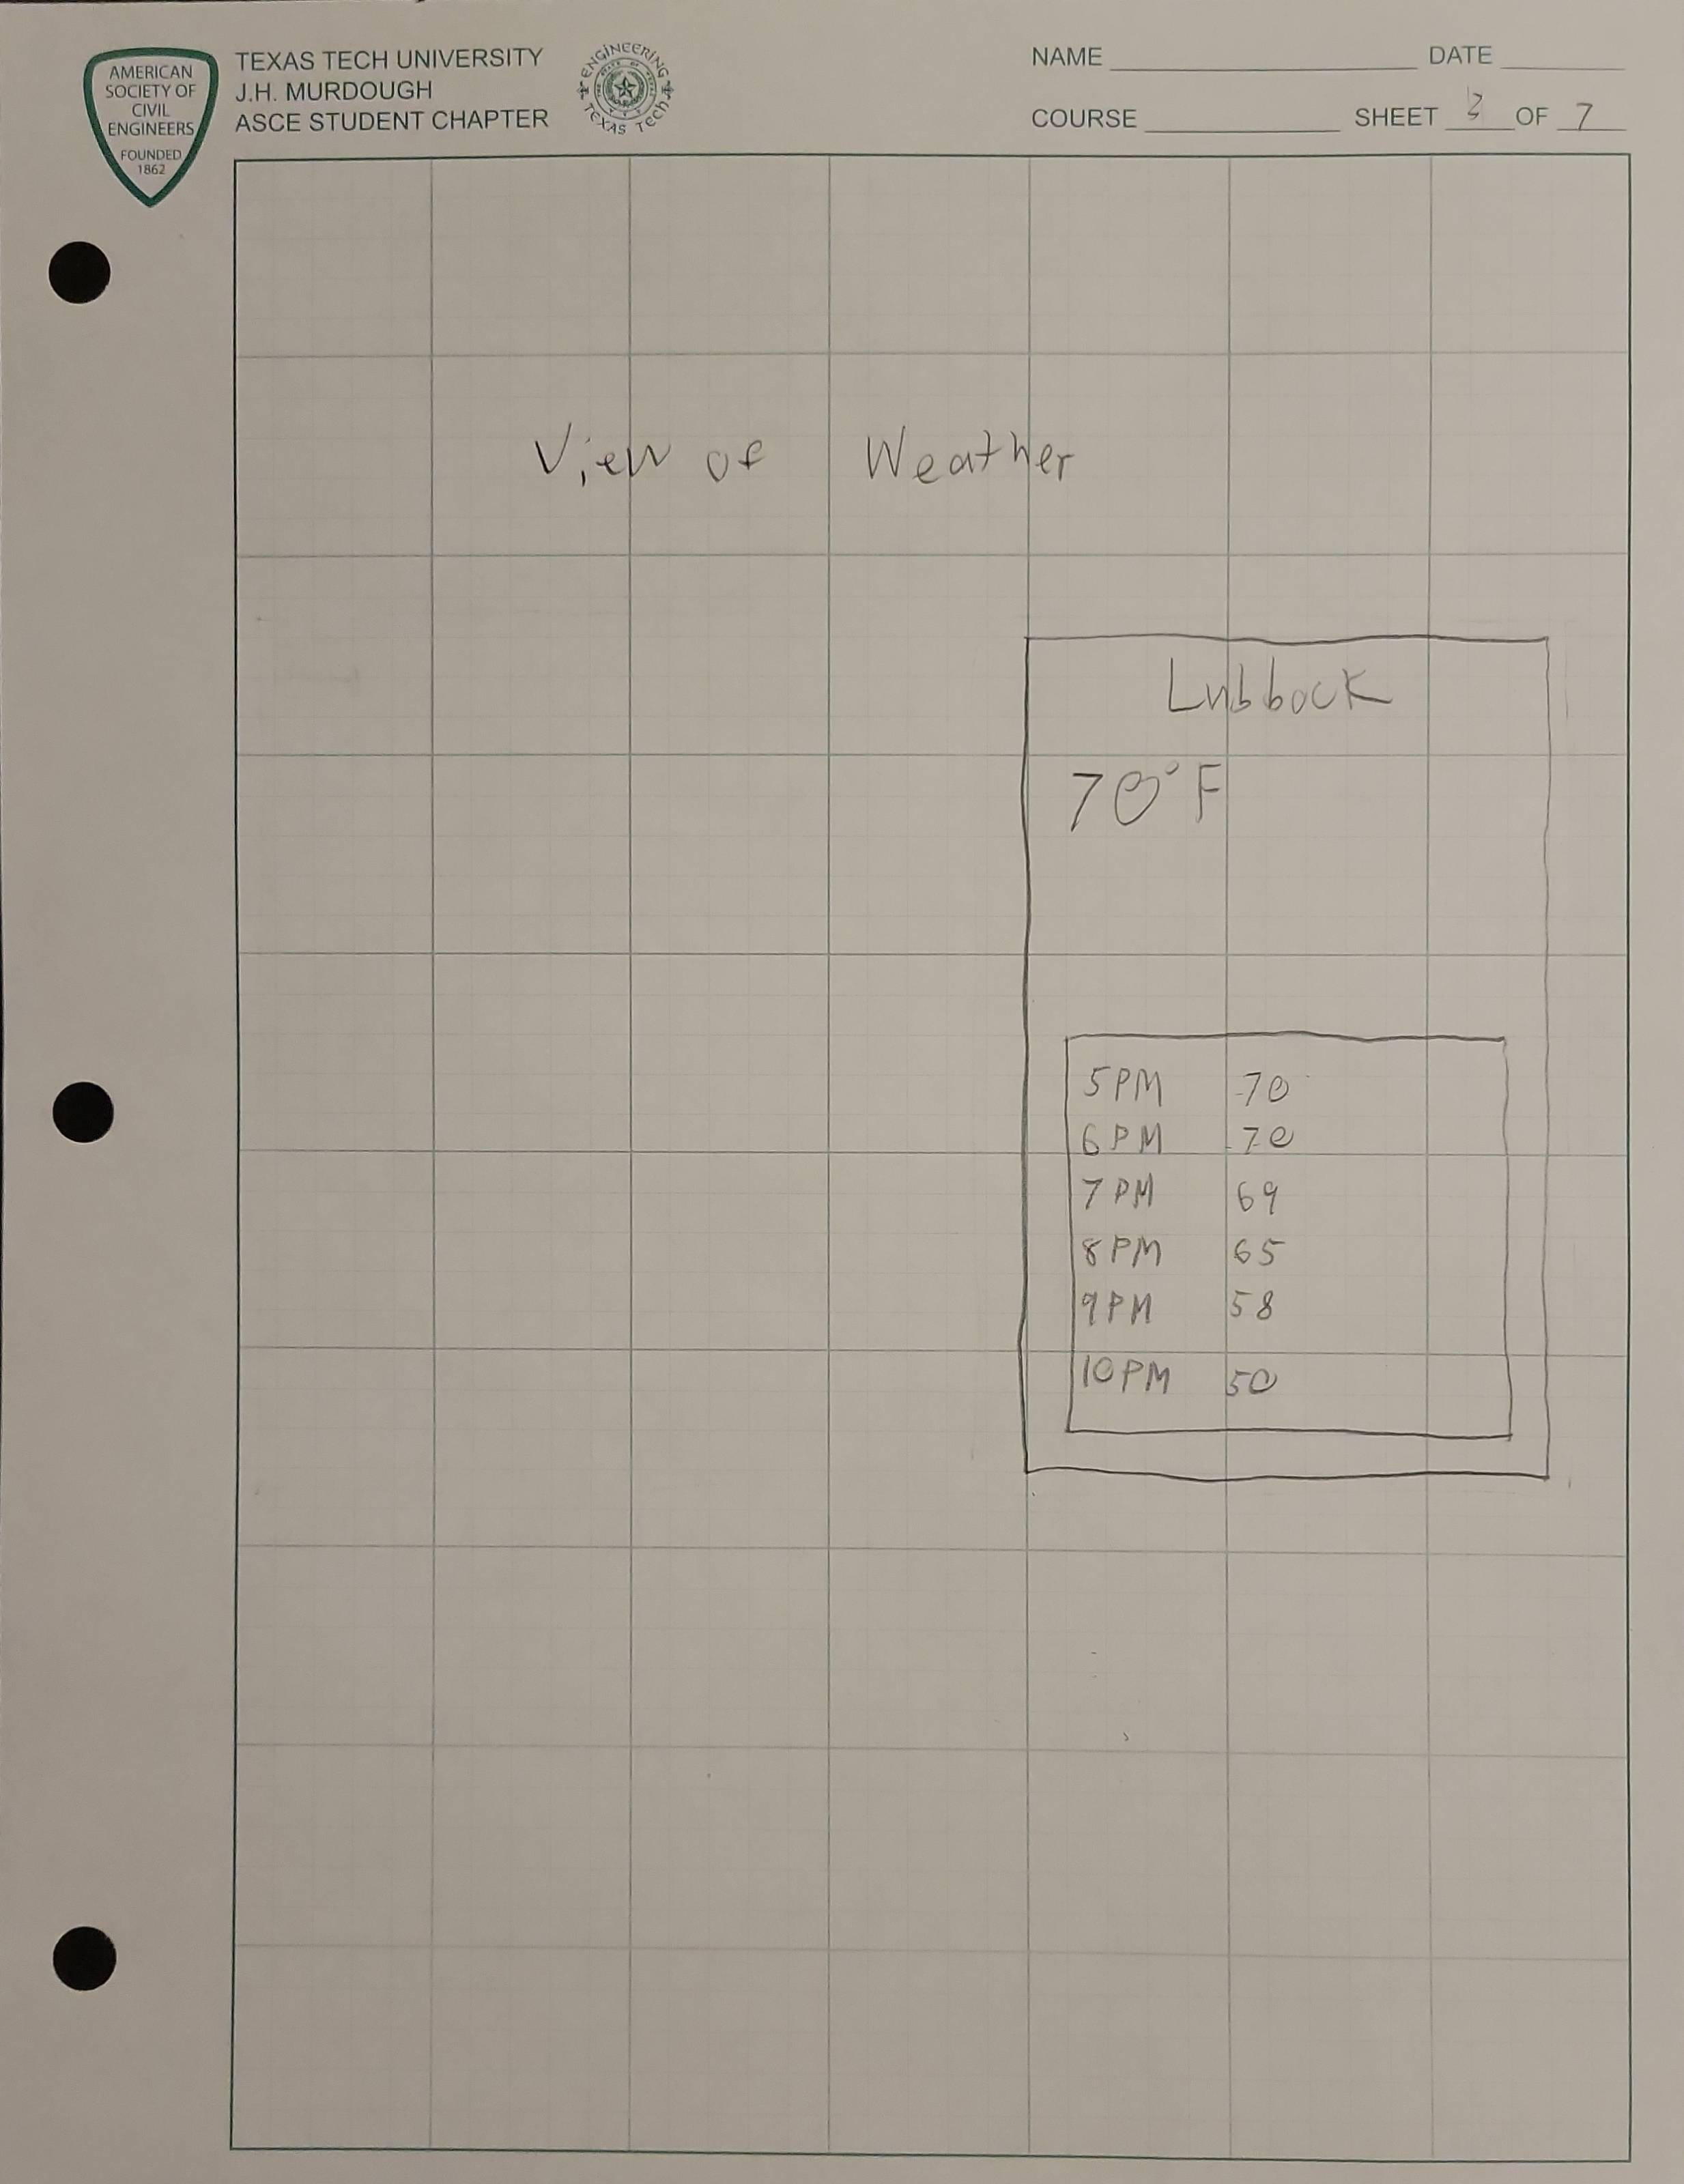 AMERICAN
SOCIETY OF
CIVIL
ENGINEERS
FOUNDED
1862
TEXAS TECH UNIVERSITY
J.H. MURDOUGH
ASCE STUDENT CHAPTER
ENGINEERING
TEXAS TECH
NAME DATE
COURSE SHEET 3 OF 7
View of Weather
Lubbock
70°F
5PM 70
6PM 70
7PM 69
8PM 65
9PM 58
10PM 50